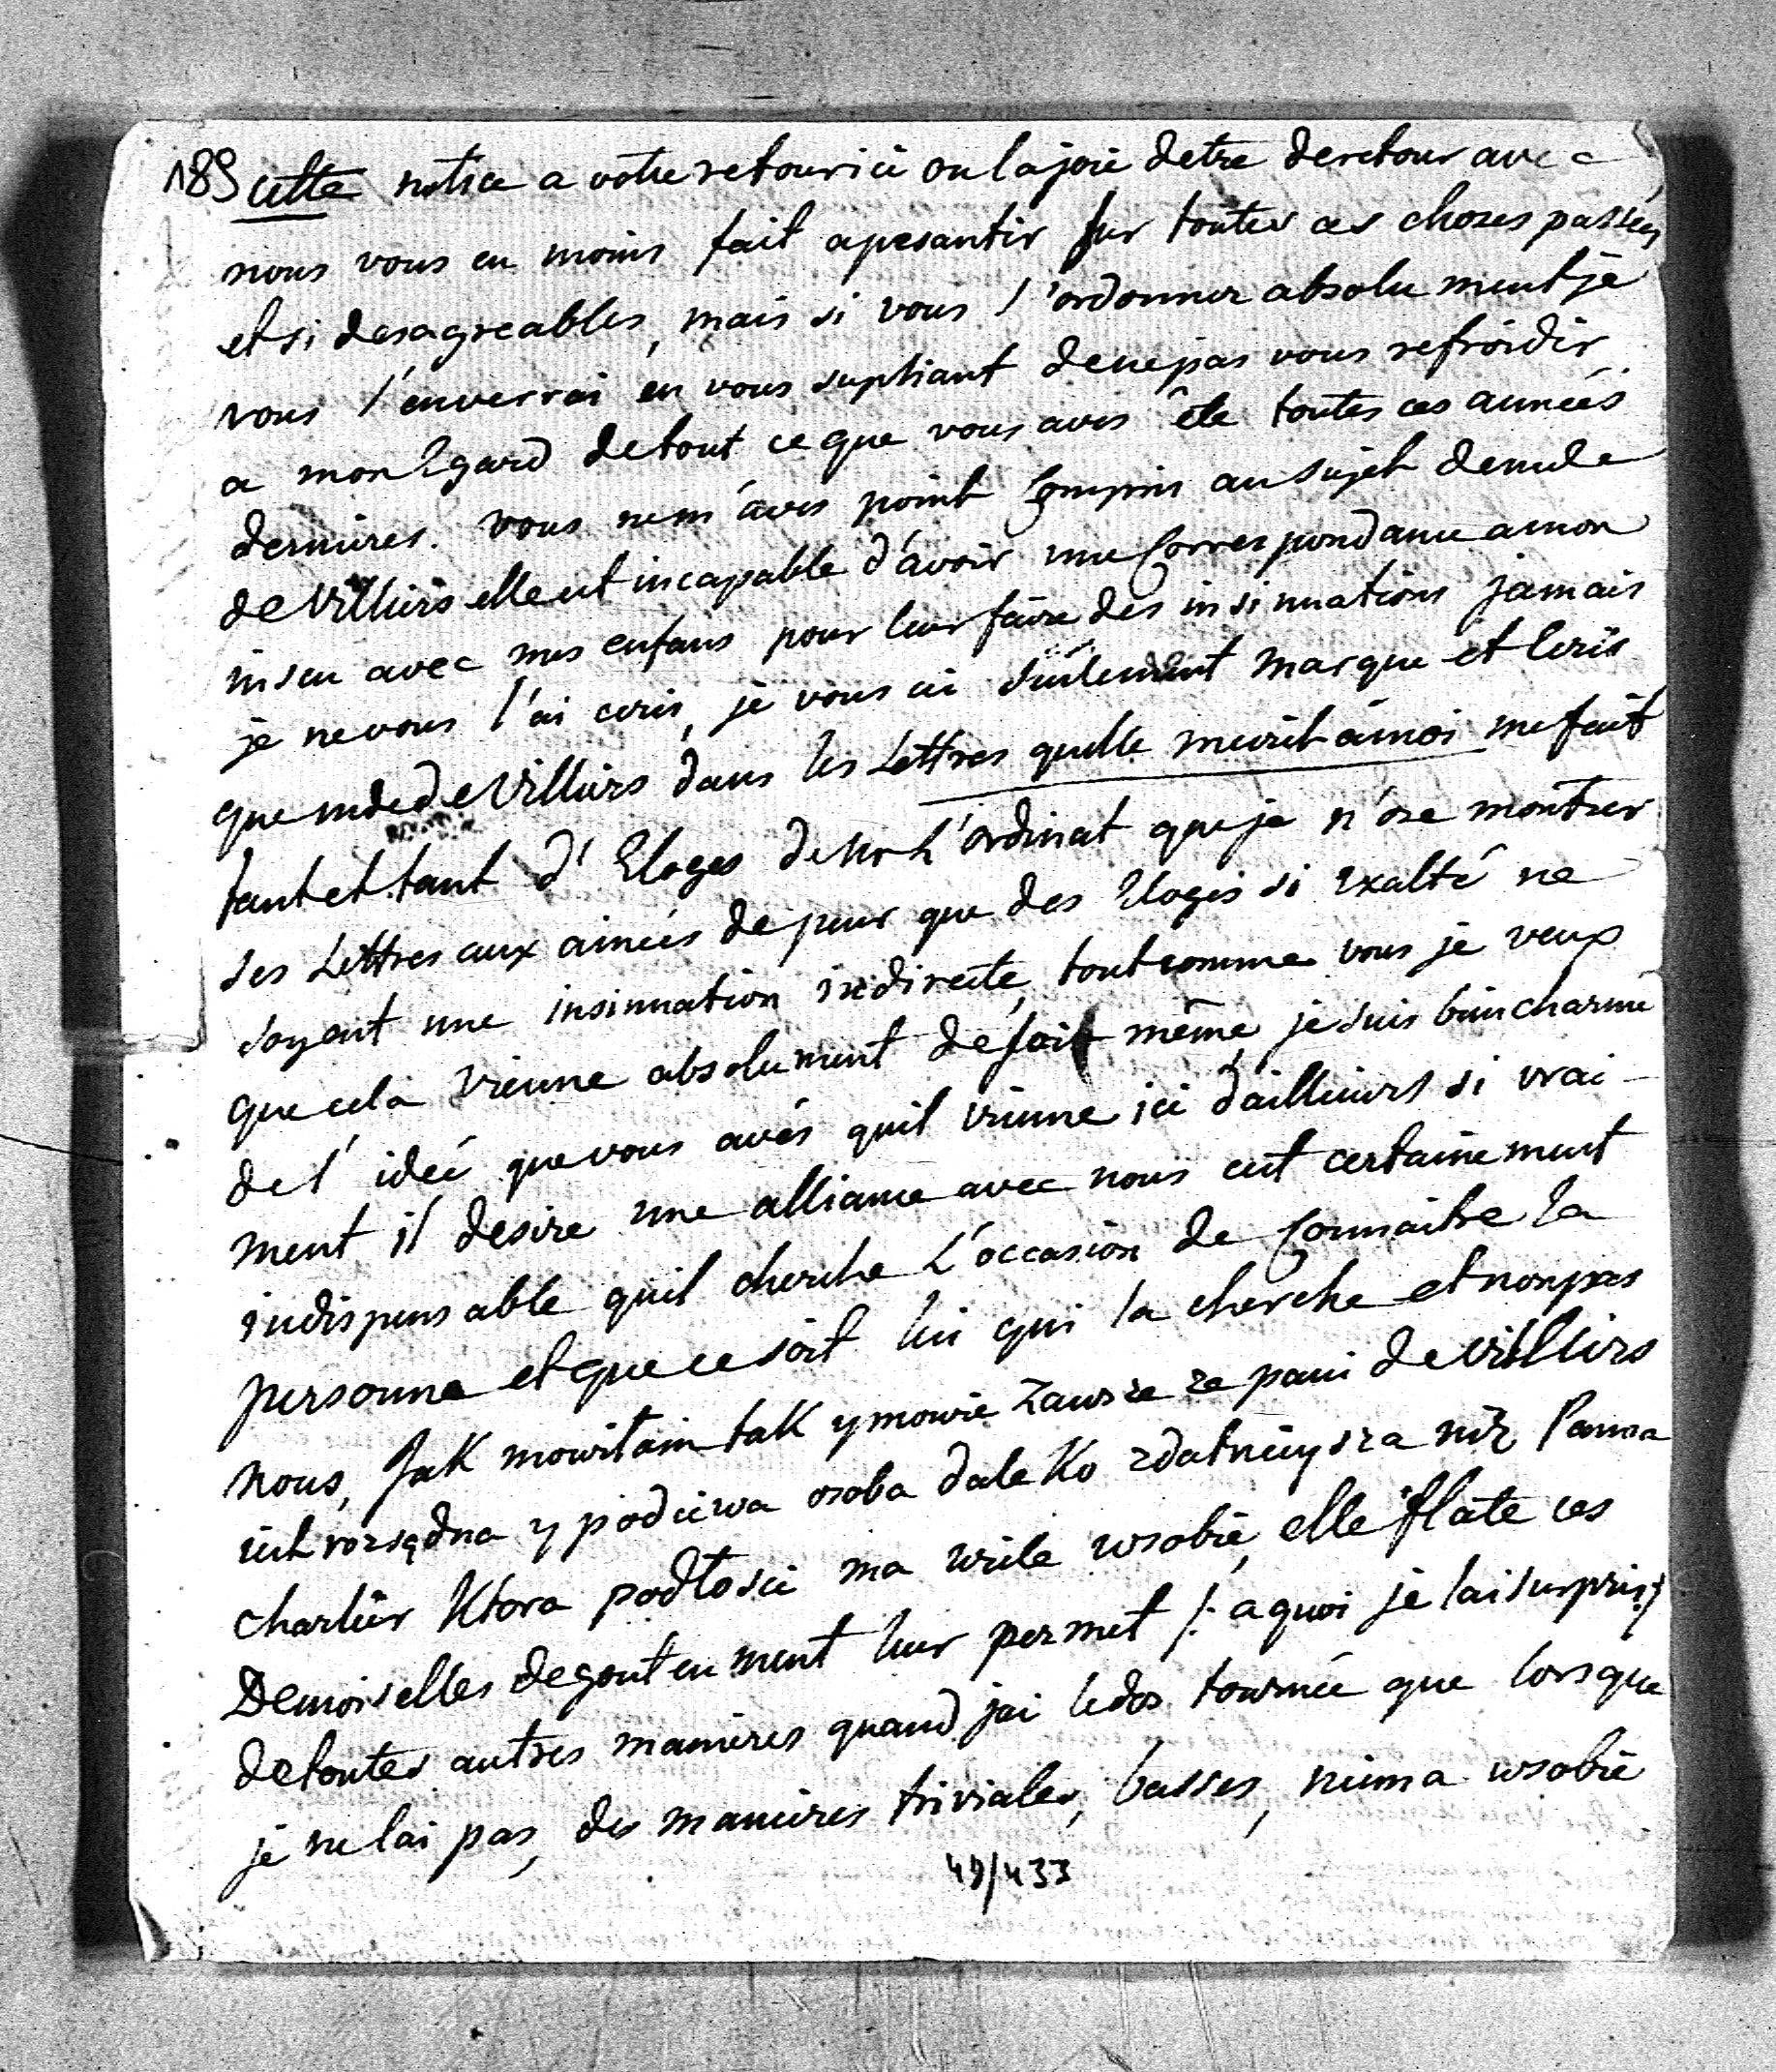 189 cette notice a votre retour ici ou la joie detre de retour avec
nous vous en moins fait apesantir sur toutes ces choses passées
et si desagreables, mais si vous l'ordonner absolument je
vous l'enverrai en vous supliant de ne pas vous refroidir
a mon Egard de tout ce que vous avés été toutes ces années
dernieres. vous ne m'avés point Compris au sujet de mde
de Villiers elle est incapable d'avoir une Correspondance a mon
insçu avec mes enfans pour leur faire des insinuations jamais
je ne vous l'ai ecris, je vous ai seulement marque et Ecris
que mde de Villiers dans les Lettres quelle m'ecrit à moi me fait
tant et tant d'Eloges de Mr L'ordinat que je n'ose montrer
ses Lettres aux ainées de peur que des Eloges si exalté ne
soyent une insinuation indirecte, tout comme vous je veux
que cela vienne absolument de soit même je suis bien charmé
de l'ideé que vous avés quil vienne ici d'ailleurs si vrai-
ment il desire une alliance avec nous cest certainement
indispensable quil cherche L'occasion de Connaitre la
personne et que ce soit lui qui la cherche et non pas
nous, Jak mowiłam tak y mowie zawsze ze pani de Villiers
iest rozsądna y podciwa osoba daleko zdatnieysza niż Panna
charlier Ktora podłosci ma wiele w sobie, elle flate ces
Demoiselles degoutenment leur permet /: a quoi je lai surpris :/
de toutes autres manieres quand jai le dos tournée que lorsque
je ne lai pas, des manieres triviales, basses, niema w sobie
49/433